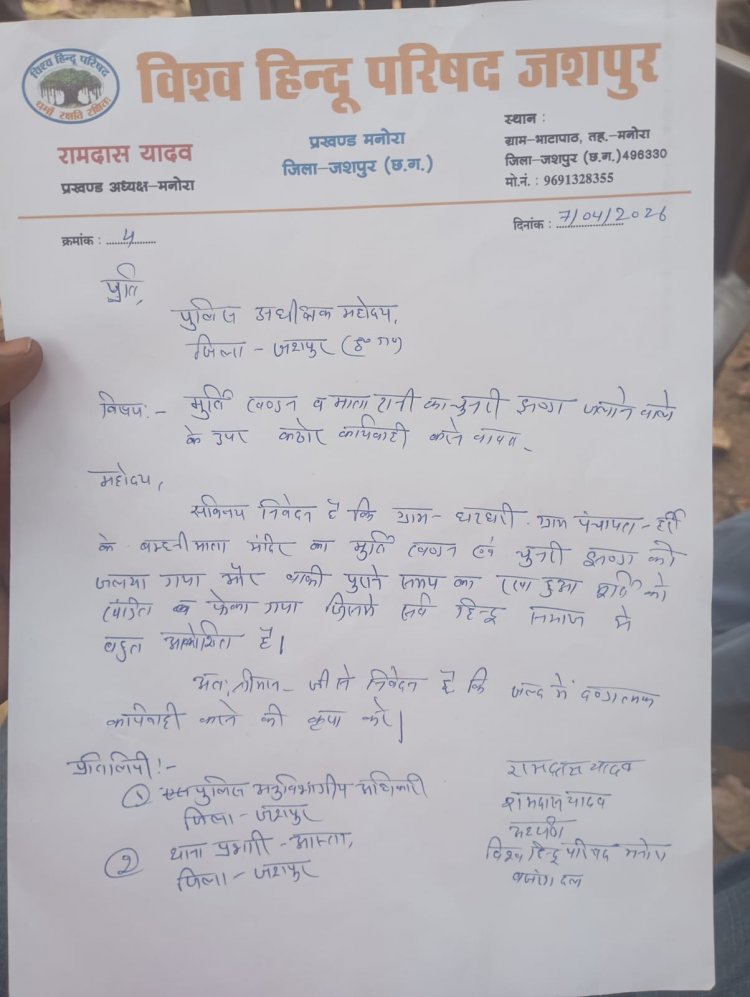 विश्व हिन्दू परिषद
धर्मो रक्षति रक्षितः
विश्व हिन्दू परिषद जशपुर
रामदास यादव
प्रखण्ड अध्यक्ष–मनोरा
प्रखण्ड मनोरा
जिला–जशपुर (छ.ग.)
स्थान :
ग्राम–भाटापाठ, तह.–मनोरा
जिला–जशपुर (छ.ग.) 496330
मो.नं. : 9691328355
क्रमांक : 4
दिनांक : 7/04/2026
प्रति,
पुलिस अधीक्षक महोदय,
जिला – जशपुर (छ० ग०)
विषय:- मुर्ति खण्डन व माता रानी का चुनरी झण्डा जलाने वाले
के उपर कठोर कार्यवाही करने वावत्
महोदय,
सविनय निवेदन है कि ग्राम – घरधरी ग्राम पंचायत –
के बम्हनी माता मंदिर का मुर्ति खण्डन एवं चुनरी झण्डा को
जलया गया और वाकी पुराने समय का रखा हुआ मुर्ति को
खंडित फेका गया जिसमे सर्व हिन्दू समाज मे
बहुत आक्रोशित है।
अतः श्रीमान – जी से निवेदन है कि जल्द में दण्डात्मक
कार्यवाही करने की कृपा करें।
प्रतिलिपी :-
① पुलिस अनुविभागीय अधिकारी
जिला – जशपुर
② थाना प्रभारी – आस्ता,
जिला – जशपुर
रामदास यादव
रामदास यादव
अध्यक्ष
विश्व हिन्दु परिषद मनोरा
बजरंग दल